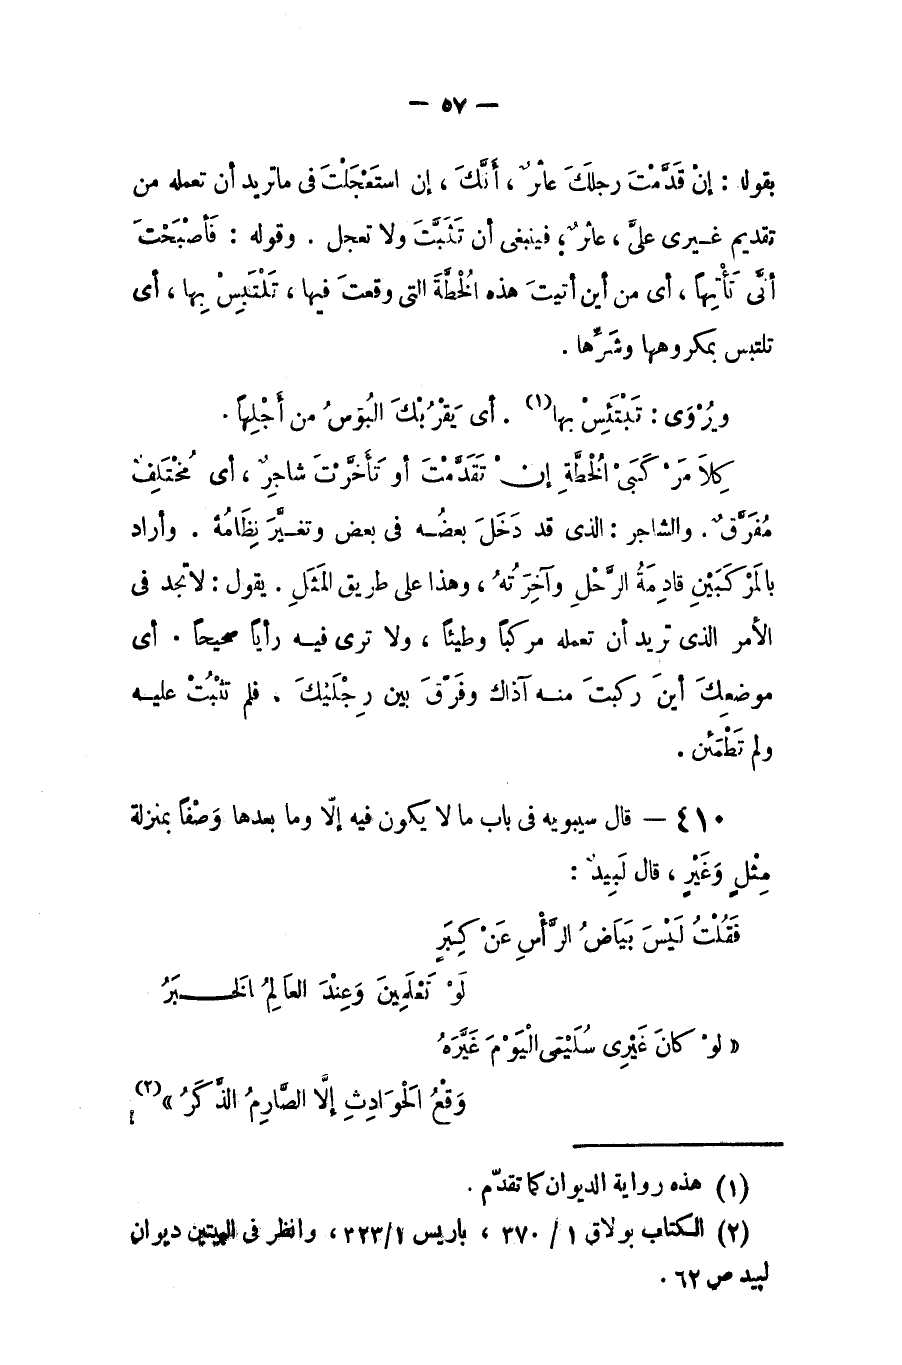 — ٥٧ —
بقوله : إنْ قَدَّمْتَ رجلَكَ عاثرٌ ، أَنَّكَ ، إن استَعْجَلْتَ فى ماتريد أن تعمله من
تقديم غيرى علىَّ ، عاثرٌ ؛ فينبغى أن تَثَبَّتَ ولا تعجل . وقوله : فَأصْبَحْتَ
أنَّى تَأْتِها ، أى من أين أتيتَ هذه الُخْطَّةَ التى وقعتَ فيها ، تَلْتَبِسْ بِها ، أى
تلتبس بمكروهها وشَرِّها .
ويُرْوَى : تَبْتَئِسْ بها(١) . أى يَقْرُبْكَ البُؤسُ من أَجْلِها .
كِلاَ مَرْكَبَىْ الُخْطَّةِ إنْ تَقَدَّمْتَ أو تَأَخَّرْتَ شاجِرٌ ، أى مُخْتَلِفٌ
مُفَرَّقٌ . والشاجر : الذى قد دَخَلَ بعضُه فى بعض وتغيَّرَ نِظَامُهُ . وأراد
بالمَرْكَبَيْنِ قادِمَةُ الرَّحْلِ وآخِرَتُهُ ، وهذا على طريق المَثَلِ . يقول : لاتجد فى
الأمر الذى تريد أن تعمله مركباً وطيئاً ، ولا ترى فيه رأياً صحيحاً . أى
موضعِكَ أينَ ركبتَ منه آذاك وفَرَّقَ بين رِجْلَيْكَ . فلم تَثْبُتْ عليه
ولم تَطْمَئن .
٤١٠ — قال سيبويه فى باب ما لا يكون فيه إلّا وما بعدها وَصْفاً بمنزلة
مِثْلٍ وَغَيْرٍ ، قال لَبِيدٌ :
فَقُلْتُ لَيْسَ بَيَاضُ الرَّأْسِ عَنْ كِبَرٍ
لَوْ تَعْلَمِينَ وَعِنْدَ العَالِمُ الخَبَرُ
« لوْ كانَ غَيْرِى سُلَيْمَى الْيَوْمَ غَيَّرَهُ
وَقْعُ الَحْوَادِثِ إلَّا الصَّارِمُ الذَّكَرُ »(٢)
(١) هذه رواية الديوان كما تقدّم .
(٢) الكتاب بولاق ١ / ٣٧٠ ، باريس ٣٢٣/١ ، وانظر فى البيتين ديوان
لبيد ص ٦٢ .